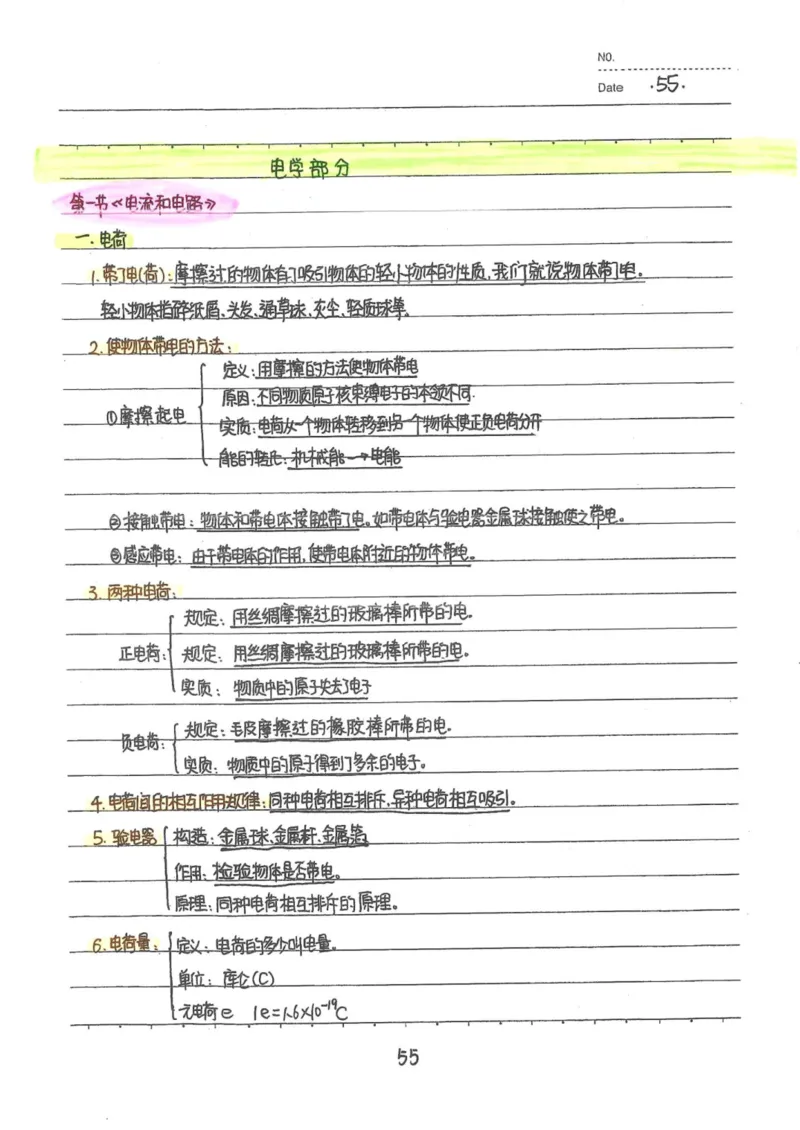 NO.
Date ·55·
电学部分
第一节《电流和电路》
一.电荷
1.带了电(荷):摩擦过的物体有了吸引物体的轻小物体的性质,我们就说物体带了电。
轻小物体指碎纸屑、头发、通草球、灰尘、轻质球等。
2.使物体带电的方法:
①摩擦起电
定义:用摩擦的方法使物体带电
原因:不同物质原子核束缚电子的本领不同.
实质:电荷从一个物体转移到另一个物体使正负电荷分开
能的转化:机械能→电能
②接触带电:物体和带电体接触带了电。如带电体与验电器金属球接触使之带电。
③感应带电:由于带电体的作用,使带电体附近的物体带电。
3.两种电荷:
正电荷:
规定:用丝绸摩擦过的玻璃棒所带的电。
规定:用丝绸摩擦过的玻璃棒所带的电。
实质:物质中的原子失去了电子
负电荷:
规定:毛皮摩擦过的橡胶棒所带的电.
实质:物质中的原子得到了多余的电子。
4.电荷间的相互作用规律:同种电荷相互排斥,异种电荷相互吸引。
5.验电器
构造:金属球、金属杆、金属箔
作用:检验物体是否带电。
原理:同种电荷相互排斥的原理。
6.电荷量:
定义:电荷的多少叫电量。
单位:库仑(C)
元电荷e 1e=1.6×10⁻¹⁹C
55